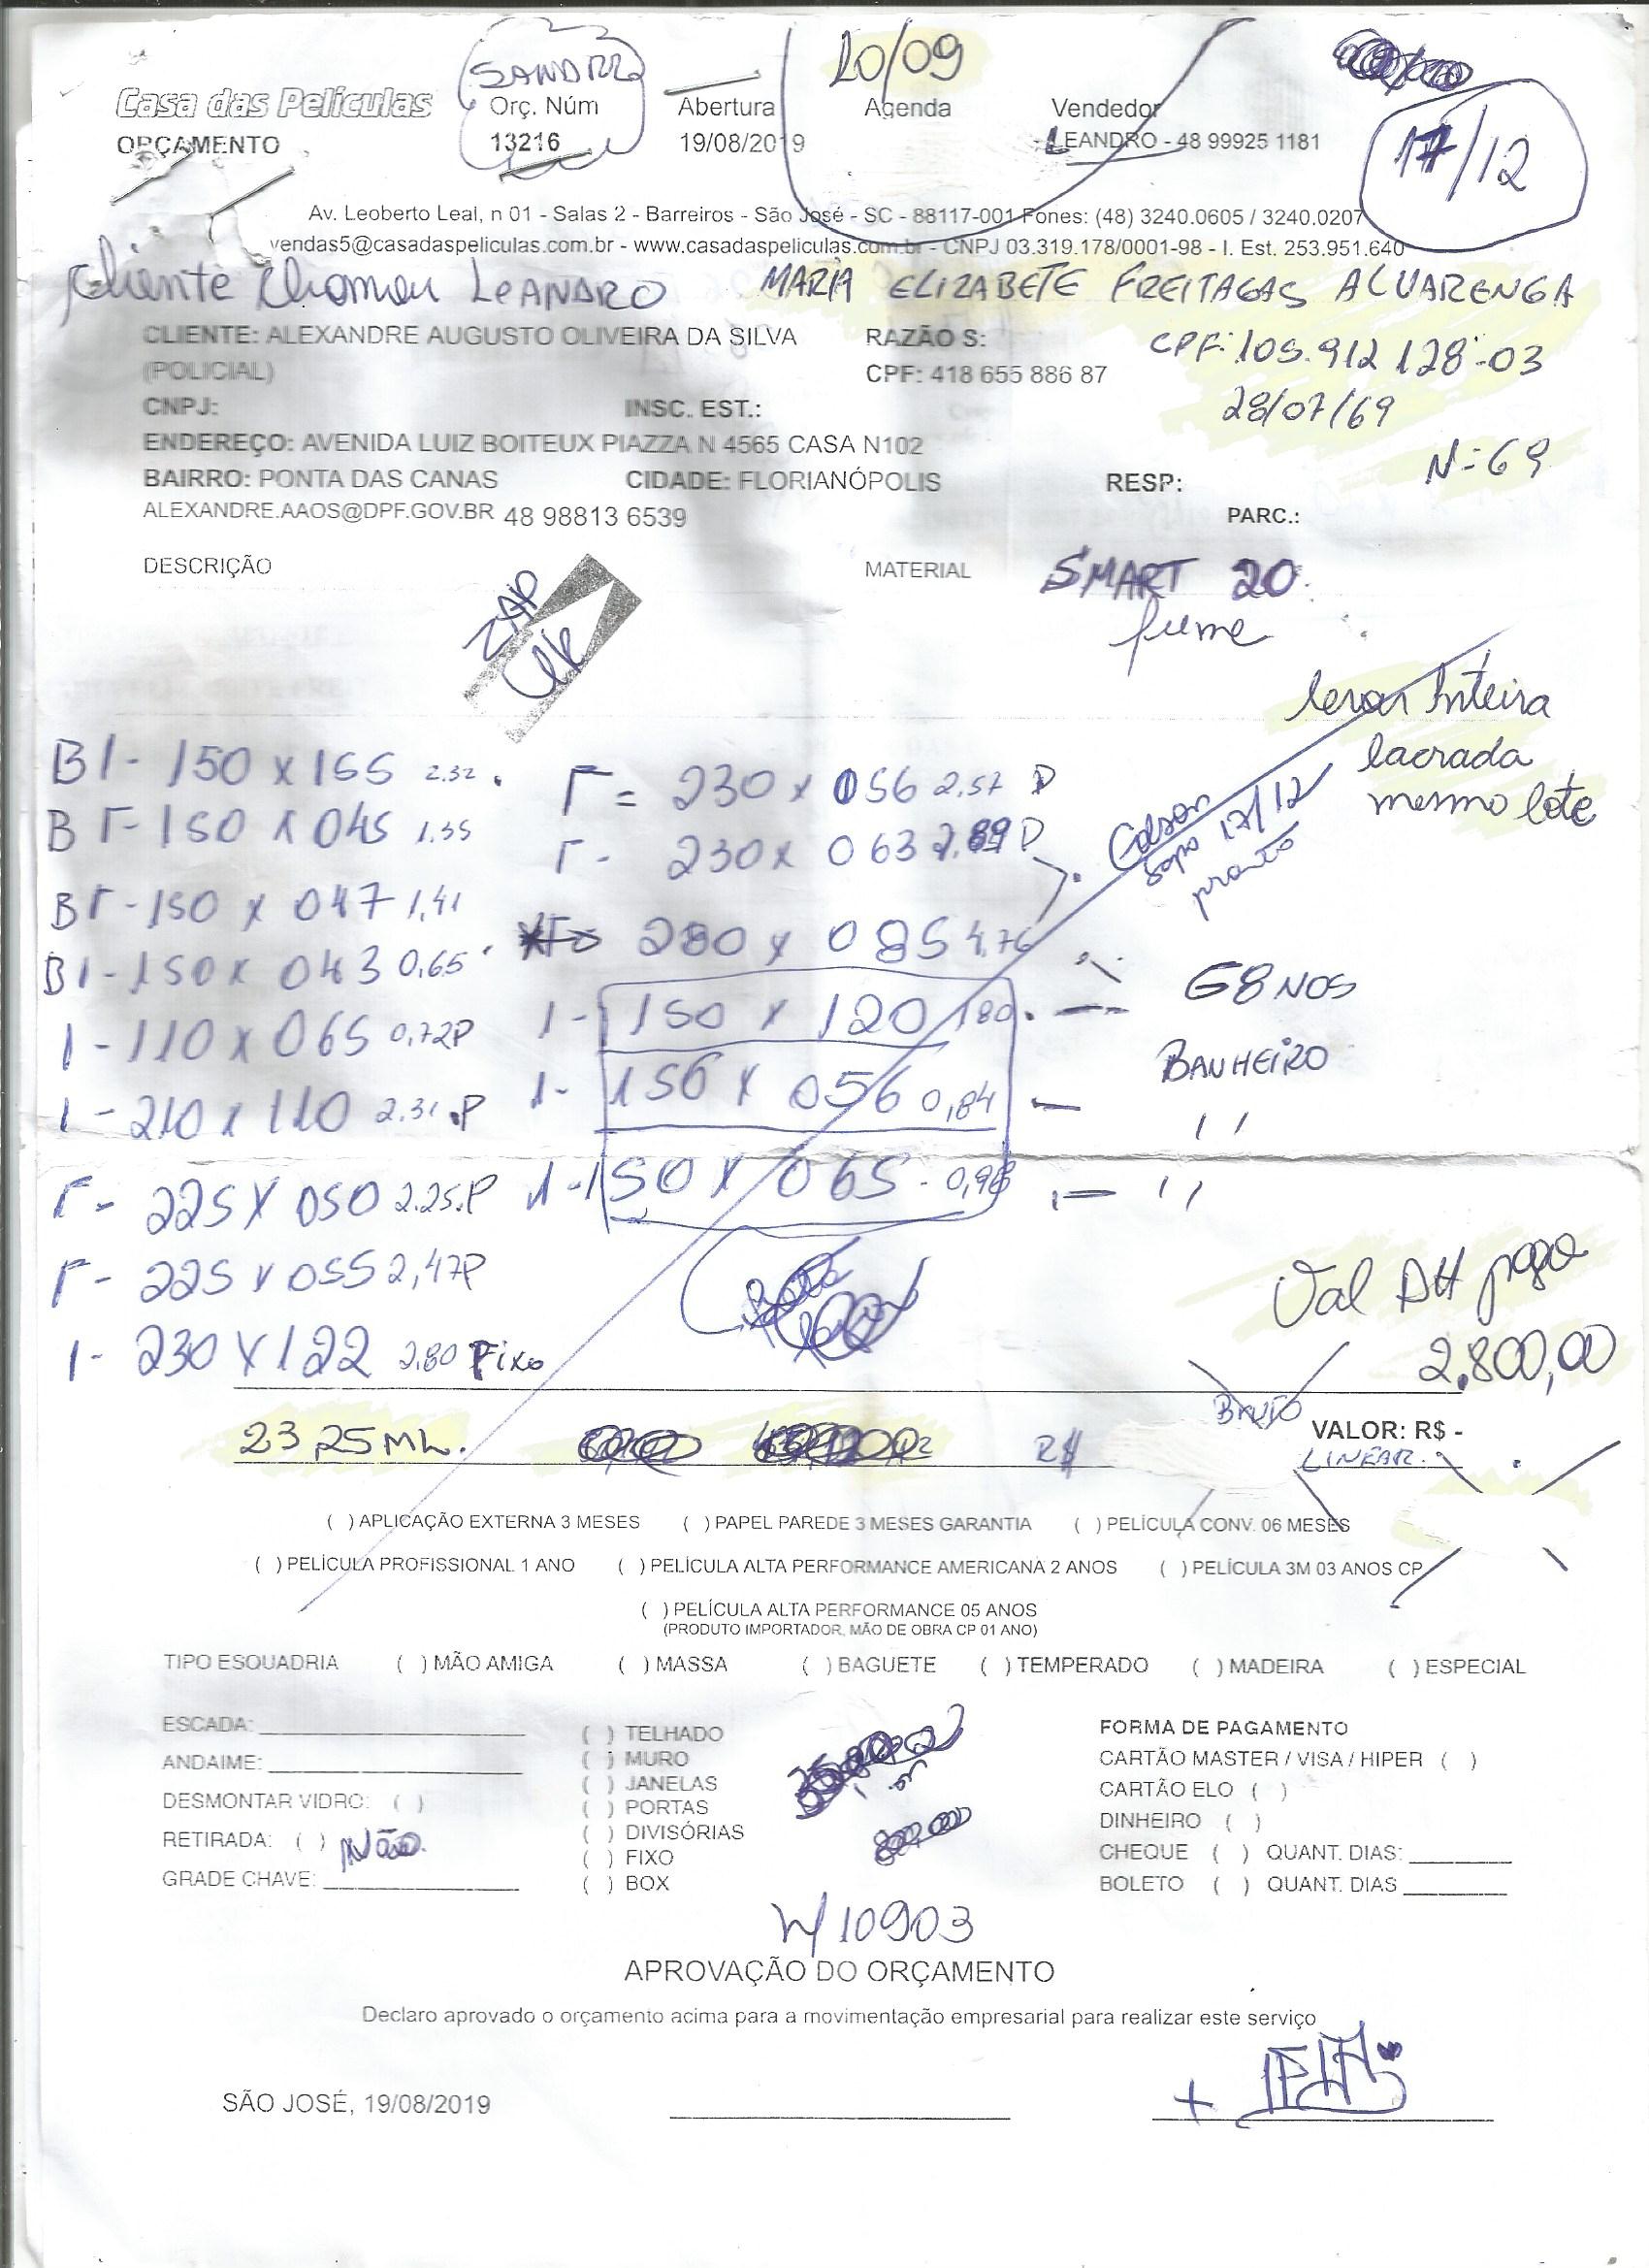 SANDRA
20/09
Casa das Películas
Orç. Núm
Abertura
Agenda
Vendedor
ORÇAMENTO
13216
19/08/2019
LEANDRO - 48 99925 1181
17/12
Av. Leoberto Leal, n 01 - Salas 2 - Barreiros - São José - SC - 88117-001 Fones: (48) 3240.0605 / 3240.0207
vendas5@casadaspeliculas.com.br - www.casadaspeliculas.com.br - CNPJ 03.319.178/0001-98 - I. Est. 253.951.640
Cliente chamou LEANDRO
MARIA ELIZABETE FREITAGAS ALVARENGA
CLIENTE: ALEXANDRE AUGUSTO OLIVEIRA DA SILVA
RAZÃO S:
CPF: 105.912 128-03
(POLICIAL)
CPF: 418 655 886 87
28/07/69
CNPJ:
INSC. EST.:
ENDEREÇO: AVENIDA LUIZ BOITEUX PIAZZA N 4565 CASA N102
N=69
BAIRRO: PONTA DAS CANAS
CIDADE: FLORIANÓPOLIS
RESP:
ALEXANDRE.AAOS@DPF.GOV.BR 48 98813 6539
PARC.:
DESCRIÇÃO
MATERIAL
SMART 20
fume
ZAP
levar Inteira
lacrada
mesmo lote
Edson
17/12
pronto
B1- 150 x 155 2.32.
Γ= 230 x 056 2,57 D
BΓ-150 x 045 1.35
Γ- 230 x 063 2,89 D
BΓ-150 x 047 1,41
280 x 085 4,76
B1-150 x 043 0,65
1-150 x 120 1,80
G8 NOS
1-110 x 065 0,72P
1-156 x 056 0,84
BANHEIRO
1-210 x 110 2.31.P
,,
Γ- 225 x 050 2.25.P
1-150 x 065 - 0,98
,,
Γ- 225 x 055 2,47P
1- 230 x 122 2,80 Fixo
Val AH pago
2.800,00
23 25 ML.
R$
VALOR: R$ -
LINEAR.
( ) APLICAÇÃO EXTERNA 3 MESES ( ) PAPEL PAREDE 3 MESES GARANTIA ( ) PELÍCULA CONV. 06 MESES
( ) PELÍCULA PROFISSIONAL 1 ANO ( ) PELÍCULA ALTA PERFORMANCE AMERICANA 2 ANOS ( ) PELÍCULA 3M 03 ANOS CP
( ) PELÍCULA ALTA PERFORMANCE 05 ANOS
(PRODUTO IMPORTADOR, MÃO DE OBRA CP 01 ANO)
TIPO ESQUADRIA ( ) MÃO AMIGA ( ) MASSA ( ) BAGUETE ( ) TEMPERADO ( ) MADEIRA ( ) ESPECIAL
ESCADA:
ANDAIME:
DESMONTAR VIDRO: ( )
RETIRADA: ( ) Não
GRADE CHAVE:
( ) TELHADO
( ) MURO
( ) JANELAS
( ) PORTAS
( ) DIVISÓRIAS
( ) FIXO
( ) BOX
FORMA DE PAGAMENTO
CARTÃO MASTER / VISA / HIPER ( )
CARTÃO ELO ( )
DINHEIRO ( )
CHEQUE ( ) QUANT. DIAS:
BOLETO ( ) QUANT. DIAS
N/10903
APROVAÇÃO DO ORÇAMENTO
Declaro aprovado o orçamento acima para a movimentação empresarial para realizar este serviço
SÃO JOSÉ, 19/08/2019